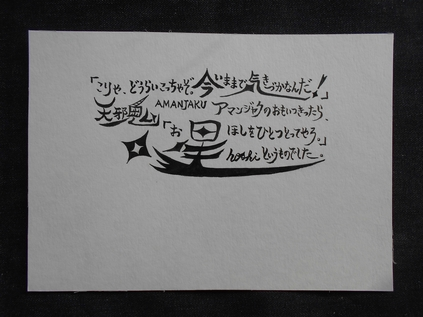 「こりゃ、どうらいこっちゃぞ。今いままで気きづかなんだ！」
天邪鬼 AMANJAKU アマンジャクのおもいつきったら、
「お星ほしをひとつとってやろ。」
hoshi というものでした。